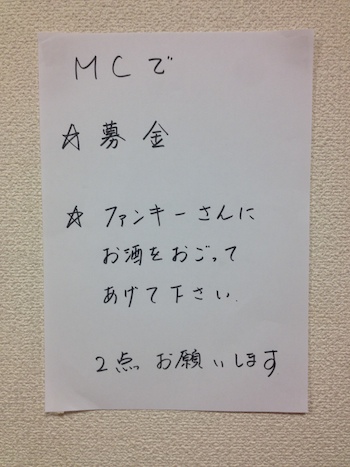 MCで
☆ 募金
☆ ファンキーさんに
お酒をおごって
あげて下さい.
2点 お願いします